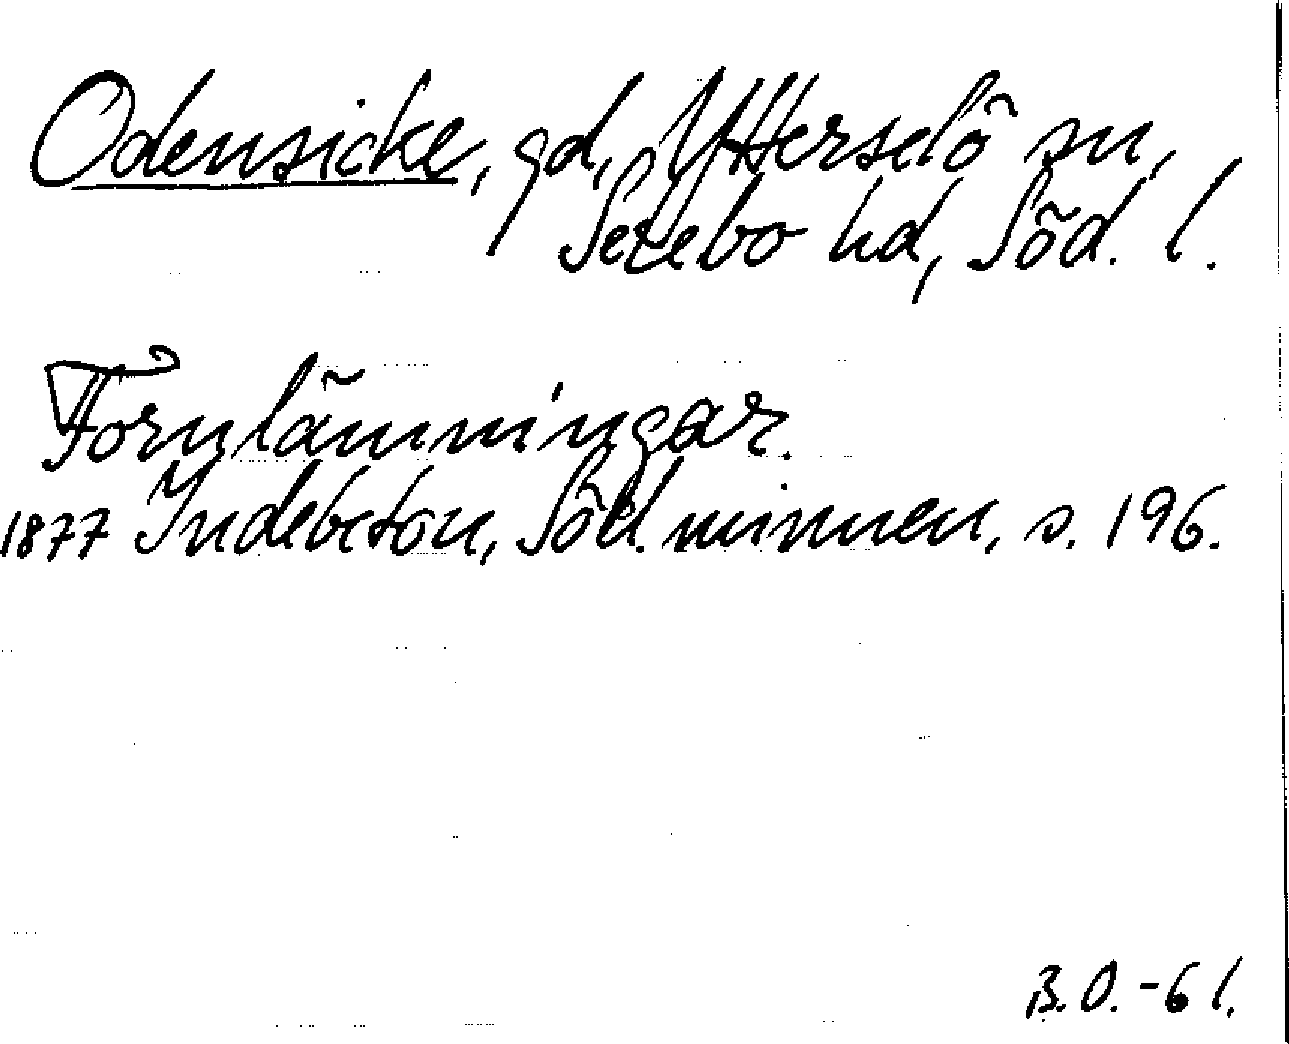 Odensicke, gd, Ytterselö sn,
Selebo hd, Söd. l.
Fornlämningar.
1877 Indebetou, Söd. minnen, s. 196.
B.O.-61.